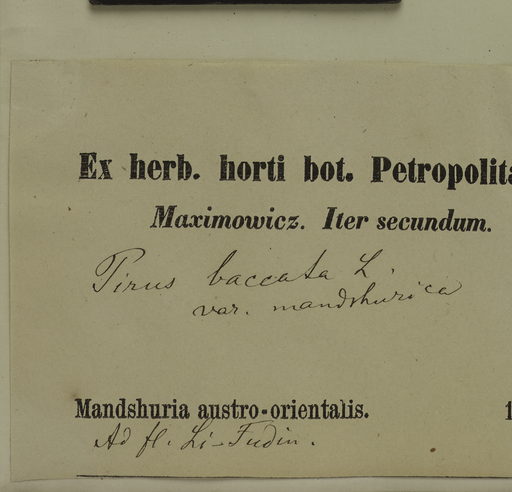 Ex herb. horti bot. Petropolita
Maximowicz. Iter secundum.
Pirus baccata L.
var. mandshurica
Mandshuria austro-orientalis. 1
Ad fl. Li-Fudin.